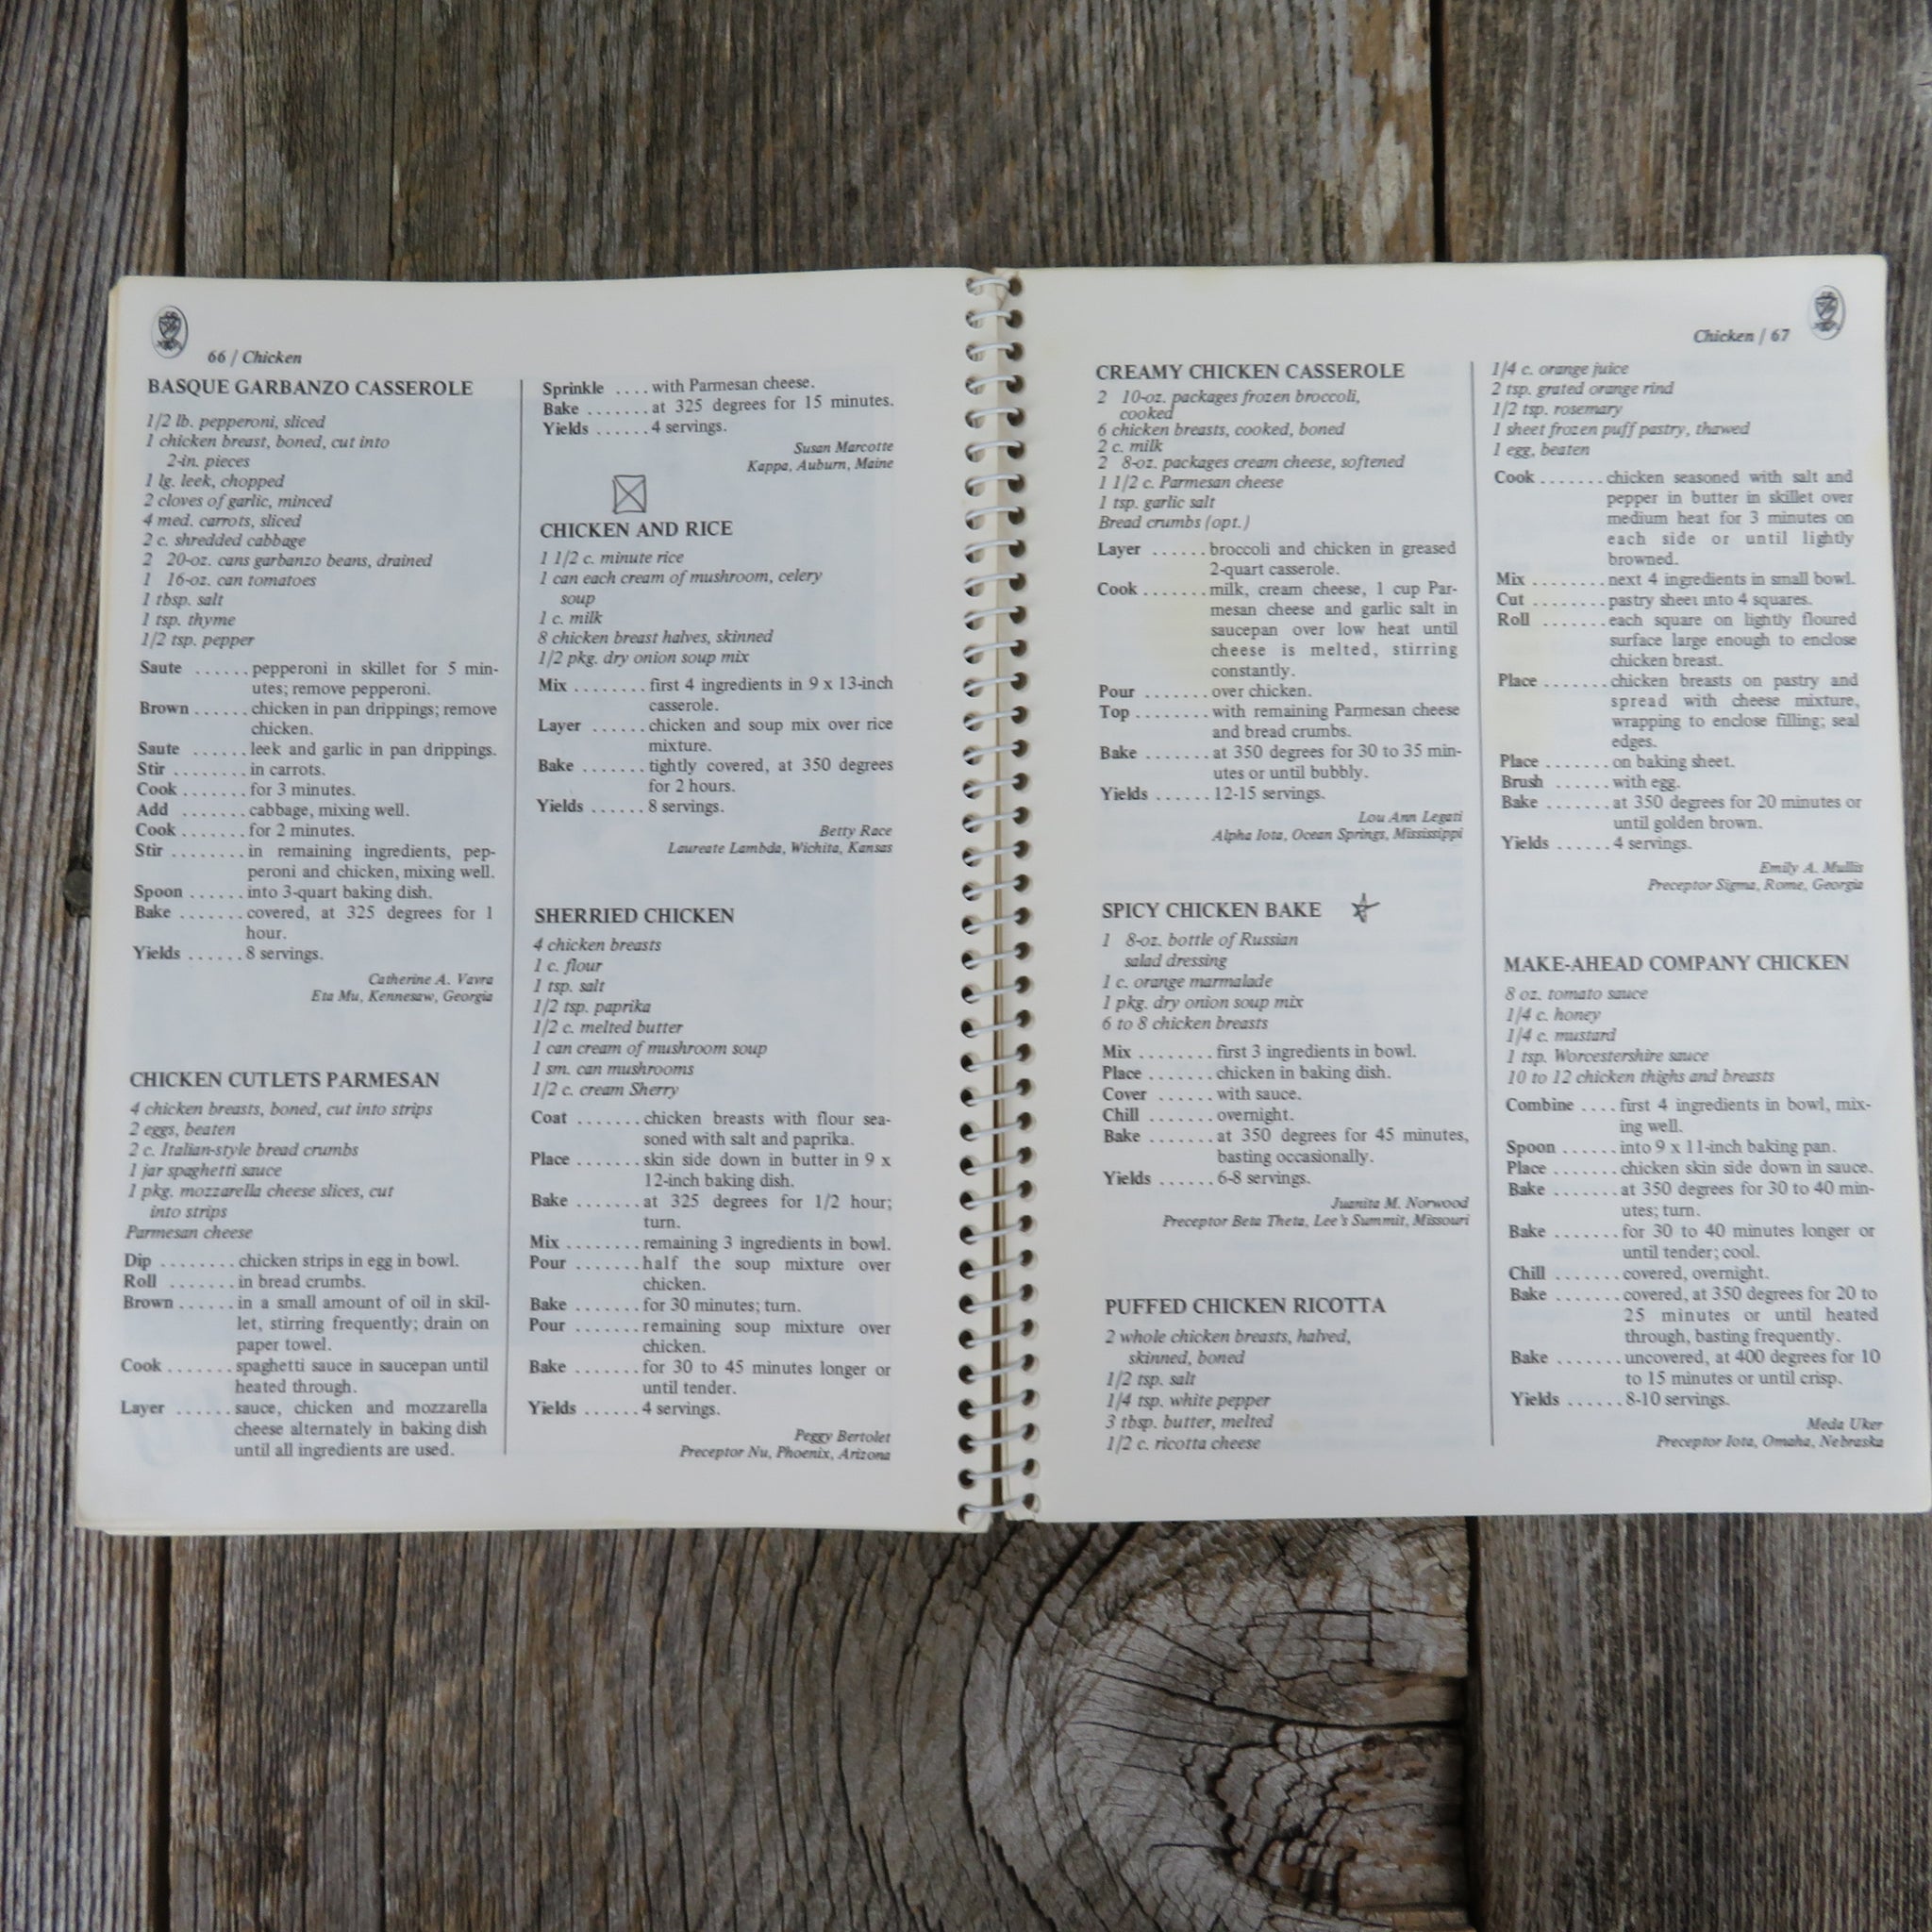 66 / Chicken
BASQUE GARBANZO CASSEROLE
1/2 lb. pepperoni, sliced
1 chicken breast, boned, cut into
2-in. pieces
1 lg. leek, chopped
2 cloves of garlic, minced
4 med. carrots, sliced
2 c. shredded cabbage
2 20-oz. cans garbanzo beans, drained
1 16-oz. can tomatoes
1 tbsp. salt
1 tsp. thyme
1/2 tsp. pepper
Saute ...... pepperoni in skillet for 5 min-
utes; remove pepperoni.
Brown ...... chicken in pan drippings; remove
chicken.
Saute ...... leek and garlic in pan drippings.
Stir ........ in carrots.
Cook ....... for 3 minutes.
Add ....... cabbage, mixing well.
Cook ....... for 2 minutes.
Stir ........ in remaining ingredients, pep-
peroni and chicken, mixing well.
Spoon ...... into 3-quart baking dish.
Bake ....... covered, at 325 degrees for 1
hour.
Yields ...... 8 servings.
Catherine A. Vavra
Eta Mu, Kennesaw, Georgia
CHICKEN CUTLETS PARMESAN
4 chicken breasts, boned, cut into strips
2 eggs, beaten
2 c. Italian-style bread crumbs
1 jar spaghetti sauce
1 pkg. mozzarella cheese slices, cut
into strips
Parmesan cheese
Dip ........ chicken strips in egg in bowl.
Roll ....... in bread crumbs.
Brown ...... in a small amount of oil in skil-
let, stirring frequently; drain on
paper towel.
Cook ....... spaghetti sauce in saucepan until
heated through.
Layer ...... sauce, chicken and mozzarella
cheese alternately in baking dish
until all ingredients are used.
Sprinkle .... with Parmesan cheese.
Bake ....... at 325 degrees for 15 minutes.
Yields ...... 4 servings.
Susan Marcotte
Kappa, Auburn, Maine
CHICKEN AND RICE
1 1/2 c. minute rice
1 can each cream of mushroom, celery
soup
1 c. milk
8 chicken breast halves, skinned
1/2 pkg. dry onion soup mix
Mix ........ first 4 ingredients in 9 x 13-inch
casserole.
Layer ...... chicken and soup mix over rice
mixture.
Bake ....... tightly covered, at 350 degrees
for 2 hours.
Yields ...... 8 servings.
Betty Race
Laureate Lambda, Wichita, Kansas
SHERRIED CHICKEN
4 chicken breasts
1 c. flour
1 tsp. salt
1/2 tsp. paprika
1/2 c. melted butter
1 can cream of mushroom soup
1 sm. can mushrooms
1/2 c. cream Sherry
Coat ....... chicken breasts with flour sea-
soned with salt and paprika.
Place ....... skin side down in butter in 9 x
12-inch baking dish.
Bake ....... at 325 degrees for 1/2 hour;
turn.
Mix ........ remaining 3 ingredients in bowl.
Pour ....... half the soup mixture over
chicken.
Bake ....... for 30 minutes; turn.
Pour ....... remaining soup mixture over
chicken.
Bake ....... for 30 to 45 minutes longer or
until tender.
Yields ...... 4 servings.
Peggy Bertolet
Preceptor Nu, Phoenix, Arizona
Chicken / 67
CREAMY CHICKEN CASSEROLE
2 10-oz. packages frozen broccoli,
cooked
6 chicken breasts, cooked, boned
2 c. milk
2 8-oz. packages cream cheese, softened
1 1/2 c. Parmesan cheese
1 tsp. garlic salt
Bread crumbs (opt.)
Layer ...... broccoli and chicken in greased
2-quart casserole.
Cook ....... milk, cream cheese, 1 cup Par-
mesan cheese and garlic salt in
saucepan over low heat until
cheese is melted, stirring
constantly.
Pour ....... over chicken.
Top ........ with remaining Parmesan cheese
and bread crumbs.
Bake ....... at 350 degrees for 30 to 35 min-
utes or until bubbly.
Yields ...... 12-15 servings.
Lou Ann Legati
Alpha Iota, Ocean Springs, Mississippi
SPICY CHICKEN BAKE
1 8-oz. bottle of Russian
salad dressing
1 c. orange marmalade
1 pkg. dry onion soup mix
6 to 8 chicken breasts
Mix ........ first 3 ingredients in bowl.
Place ....... chicken in baking dish.
Cover ...... with sauce.
Chill ....... overnight.
Bake ....... at 350 degrees for 45 minutes,
basting occasionally.
Yields ...... 6-8 servings.
Juanita M. Norwood
Preceptor Beta Theta, Lee's Summit, Missouri
PUFFED CHICKEN RICOTTA
2 whole chicken breasts, halved,
skinned, boned
1/2 tsp. salt
1/4 tsp. white pepper
3 tbsp. butter, melted
1/2 c. ricotta cheese
1/4 c. orange juice
2 tsp. grated orange rind
1/2 tsp. rosemary
1 sheet frozen puff pastry, thawed
1 egg, beaten
Cook ....... chicken seasoned with salt and
pepper in butter in skillet over
medium heat for 3 minutes on
each side or until lightly
browned.
Mix ........ next 4 ingredients in small bowl.
Cut ........ pastry sheet into 4 squares.
Roll ....... each square on lightly floured
surface large enough to enclose
chicken breast.
Place ....... chicken breasts on pastry and
spread with cheese mixture,
wrapping to enclose filling; seal
edges.
Place ....... on baking sheet.
Brush ...... with egg.
Bake ....... at 350 degrees for 20 minutes or
until golden brown.
Yields ...... 4 servings.
Emily A. Mullis
Preceptor Sigma, Rome, Georgia
MAKE-AHEAD COMPANY CHICKEN
8 oz. tomato sauce
1/4 c. honey
1/4 c. mustard
1 tsp. Worcestershire sauce
10 to 12 chicken thighs and breasts
Combine .... first 4 ingredients in bowl, mix-
ing well.
Spoon ...... into 9 x 11-inch baking pan.
Place ....... chicken skin side down in sauce.
Bake ....... at 350 degrees for 30 to 40 min-
utes; turn.
Bake ....... for 30 to 40 minutes longer or
until tender; cool.
Chill ....... covered, overnight.
Bake ....... covered, at 350 degrees for 20 to
25 minutes or until heated
through, basting frequently.
Bake ....... uncovered, at 400 degrees for 10
to 15 minutes or until crisp.
Yields ...... 8-10 servings.
Meda Uker
Preceptor Iota, Omaha, Nebraska